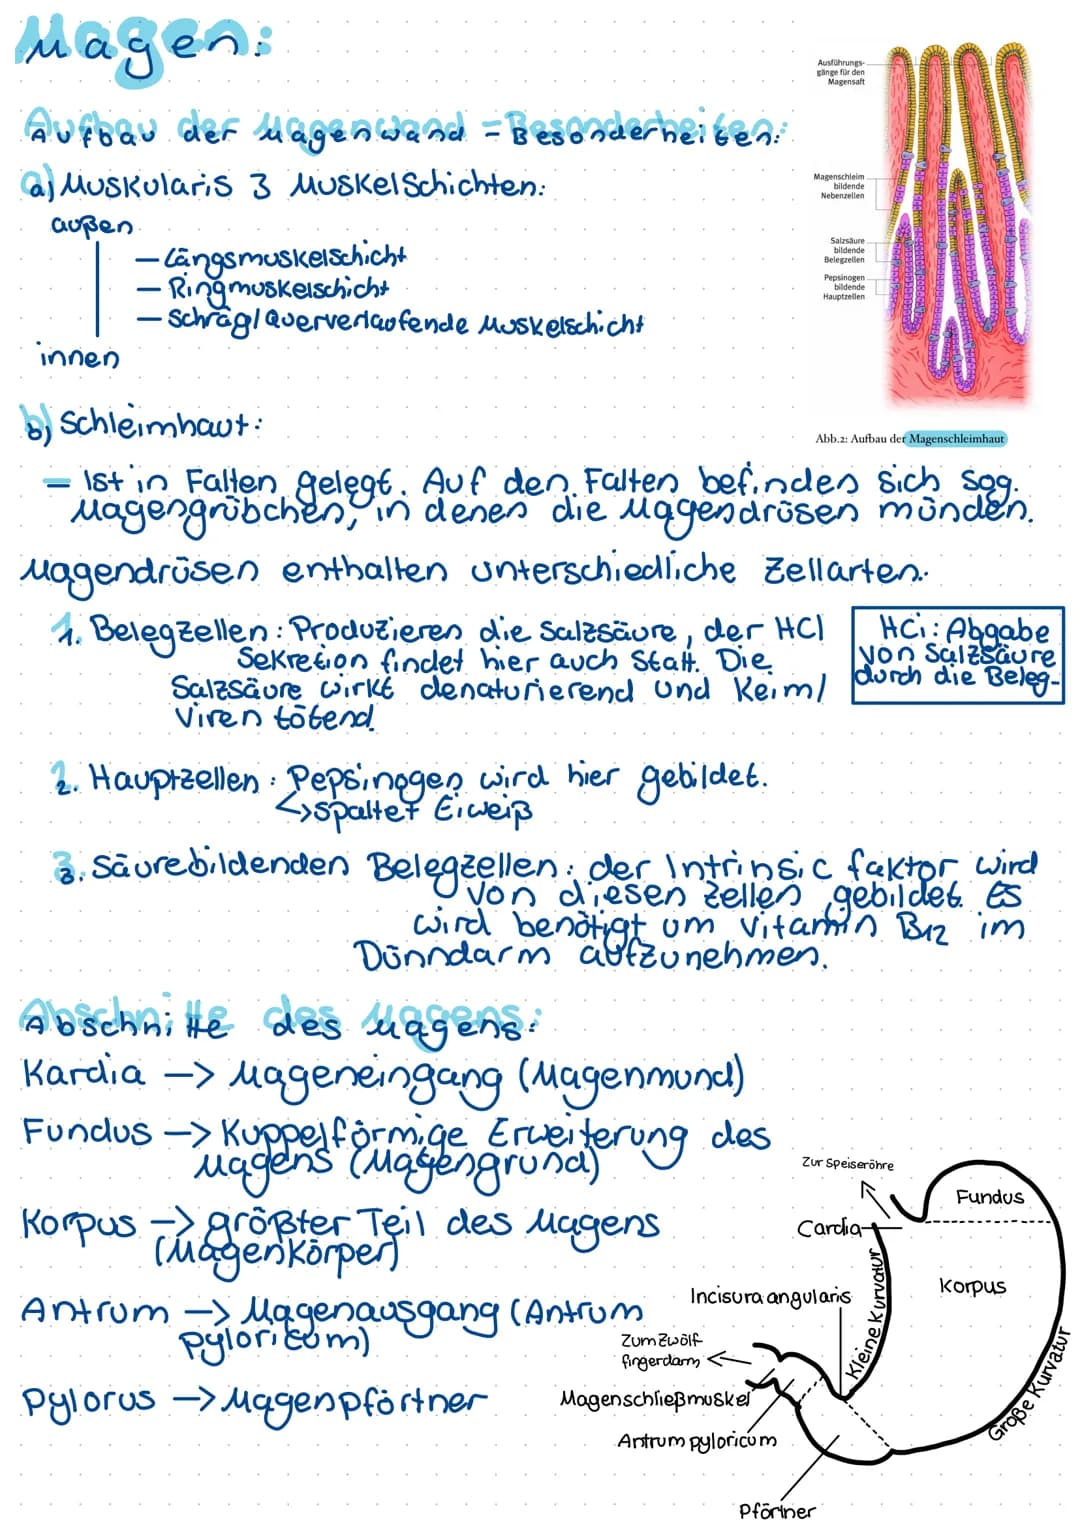 Magen:
Aufbau der Magenwand - Besonderheiten:
a) Muskularis 3 Muskelschichten:
außen
- Längsmuskelschicht
- Ringmuskelschicht
- Schräg/Querverlaufende Muskelschicht
innen
Ausführungs-
gänge für den
Magensaft
Magenschleim
bildende
Nebenzellen
Salzsäure
bildende
Belegzellen
Pepsinogen
bildende
Hauptzellen
Abb.2: Aufbau der Magenschleimhaut
b) Schleimhaut:
- Ist in Falten gelegt. Auf den Falten befinden sich sog.
Magengrübchen, in denen die Magendrüsen münden.
Magendrüsen enthalten unterschiedliche Zellarten:
1. Belegzellen: Produzieren die Salzsäure, der HCl
Sekretion findet hier auch statt. Die
Salzsäure wirkt denaturierend und Keim/
Viren tötend.
HCi: Abgabe
von Salzsäure
durch die Beleg-
2. Hauptzellen: Pepsinogen wird hier gebildet.
↳spaltet Eiweiß
3. Säurebildenden Belegzellen: der Intrinsic faktor wird
von diesen Zellen gebildet. Es
wird benötigt um Vitamin B12 im
Dünndarm aufzunehmen.
Abschnitte des Magens:
Kardia -> Mageneingang (Magenmund)
Fundus -> Kuppelförmige Erweiterung des
Magens (Magengrund)
Korpus -> größter Teil des Magens
(Magenkörper)
Antrum -> Magenausgang (Antrum
pyloricum)
Pylorus -> Magenpförtner
Zur Speiseröhre
Fundus
Cardia
Korpus
Incisura angularis
Kleine Kurvatur
Große Kurvatur
Zum Zwölf
fingerdarm
Magenschließmuskel
Antrum pyloricum
Pförtner